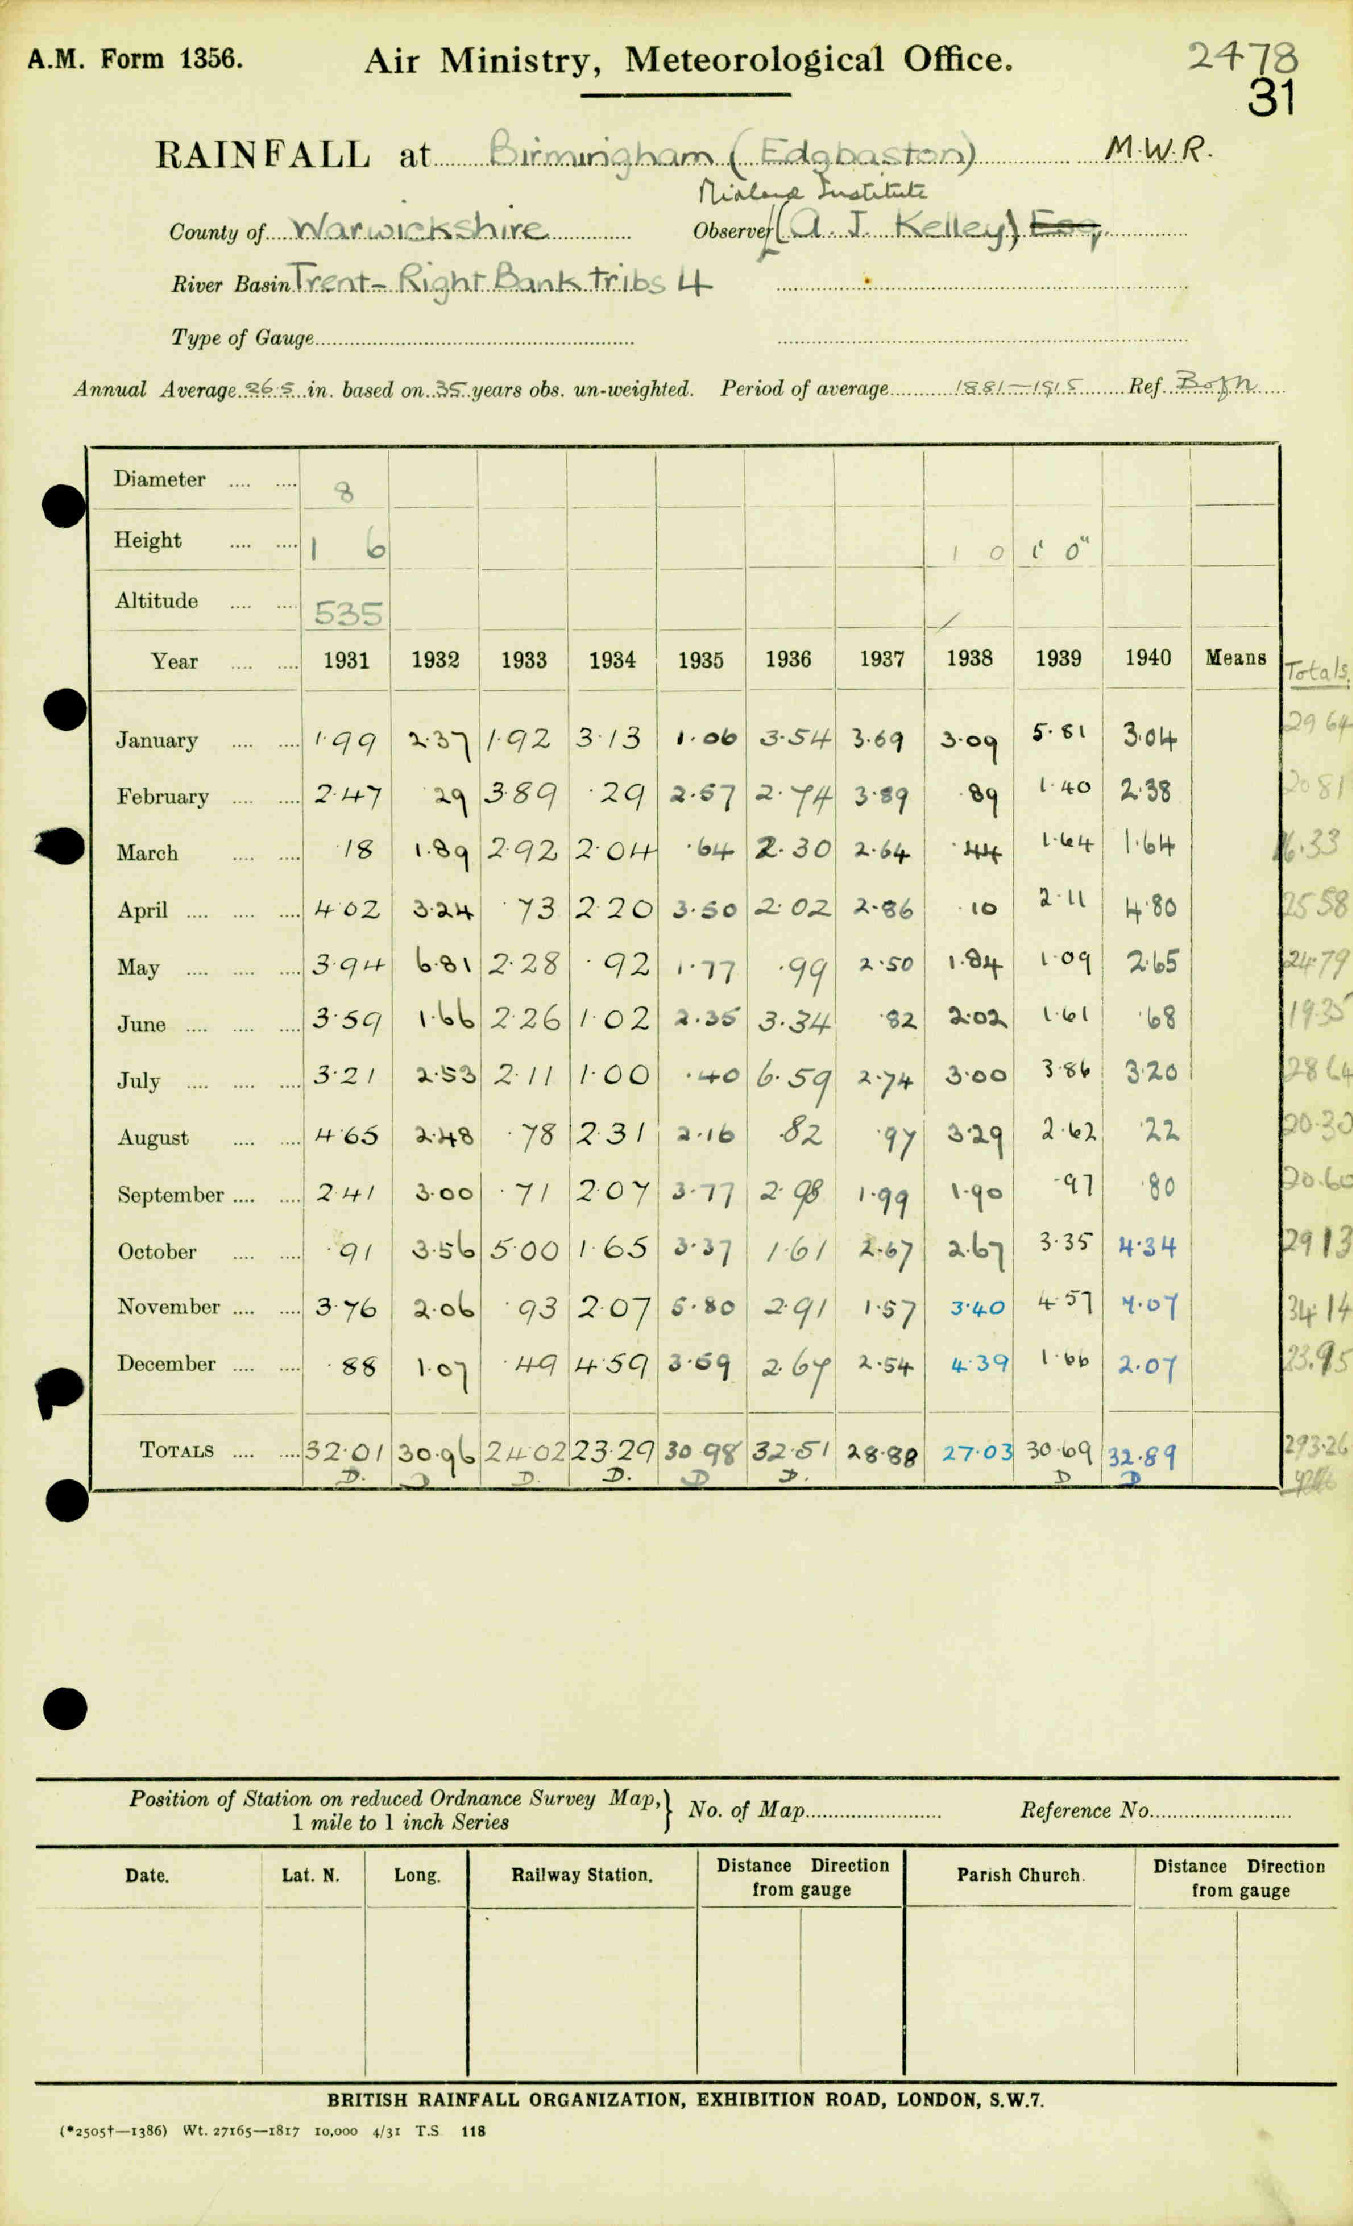 A.M. Form 1356.
Air Ministry, Meteorological Office.
2478
31
RAINFALL at Birmingham (Edgbaston) M.W.R.
Midland Institute
County of Warwickshire Observer (A. J. Kelley) Esq.
River Basin Trent - Right Bank tribs 4
Type of Gauge
Annual Average 26.5 in. based on 35 years obs. un-weighted. Period of average 1881-1915 Ref.
Diameter 8
Height 1 6 1 0 1' 0"
Altitude 535
Year 1931 1932 1933 1934 1935 1936 1937 1938 1939 1940 Means Totals.
January 1.99 2.37 1.92 3.13 1.06 3.54 3.69 3.09 5.81 3.04 29 64
February 2.47 .29 3.89 .29 2.57 2.74 3.89 .89 1.40 2.38 20 81
March .18 1.89 2.92 2.04 .64 2.30 2.64 .44 1.64 1.64 16.33
April 4.02 3.24 .73 2.20 3.50 2.02 2.86 .10 2.11 4.80 25 58
May 3.94 6.81 2.28 .92 1.77 .99 2.50 1.84 1.09 2.65 24.79
June 3.59 1.66 2.26 1.02 2.35 3.34 .82 2.02 1.61 .68 19.35
July 3.21 2.53 2.11 1.00 .40 6.59 2.74 3.00 3.86 3.20 28 64
August 4.65 2.48 .78 2.31 2.16 .82 .97 3.29 2.62 .22 20.30
September 2.41 3.00 .71 2.07 3.77 2.98 1.99 1.90 .97 .80 20.60
October .91 3.56 5.00 1.65 3.37 1.61 2.67 2.67 3.35 4.34 29 13
November 3.76 2.06 .93 2.07 5.80 2.91 1.57 3.40 4.57 7.07 34 14
December .88 1.07 .49 4.59 3.59 2.67 2.54 4.39 1.66 2.07 23.95
TOTALS 32.01 30.96 24.02 23.29 30.98 32.51 28.88 27.03 30.69 32.89 293.26
D. D D. D. D D. D D
Position of Station on reduced Ordnance Survey Map, } No. of Map Reference No.
1 mile to 1 inch Series
Date. Lat. N. Long. Railway Station. Distance Direction from gauge Parish Church. Distance Direction from gauge
BRITISH RAINFALL ORGANIZATION, EXHIBITION ROAD, LONDON, S.W.7.
(*2505†—1386) Wt. 27165—1817 10,000 4/31 T.S. 118